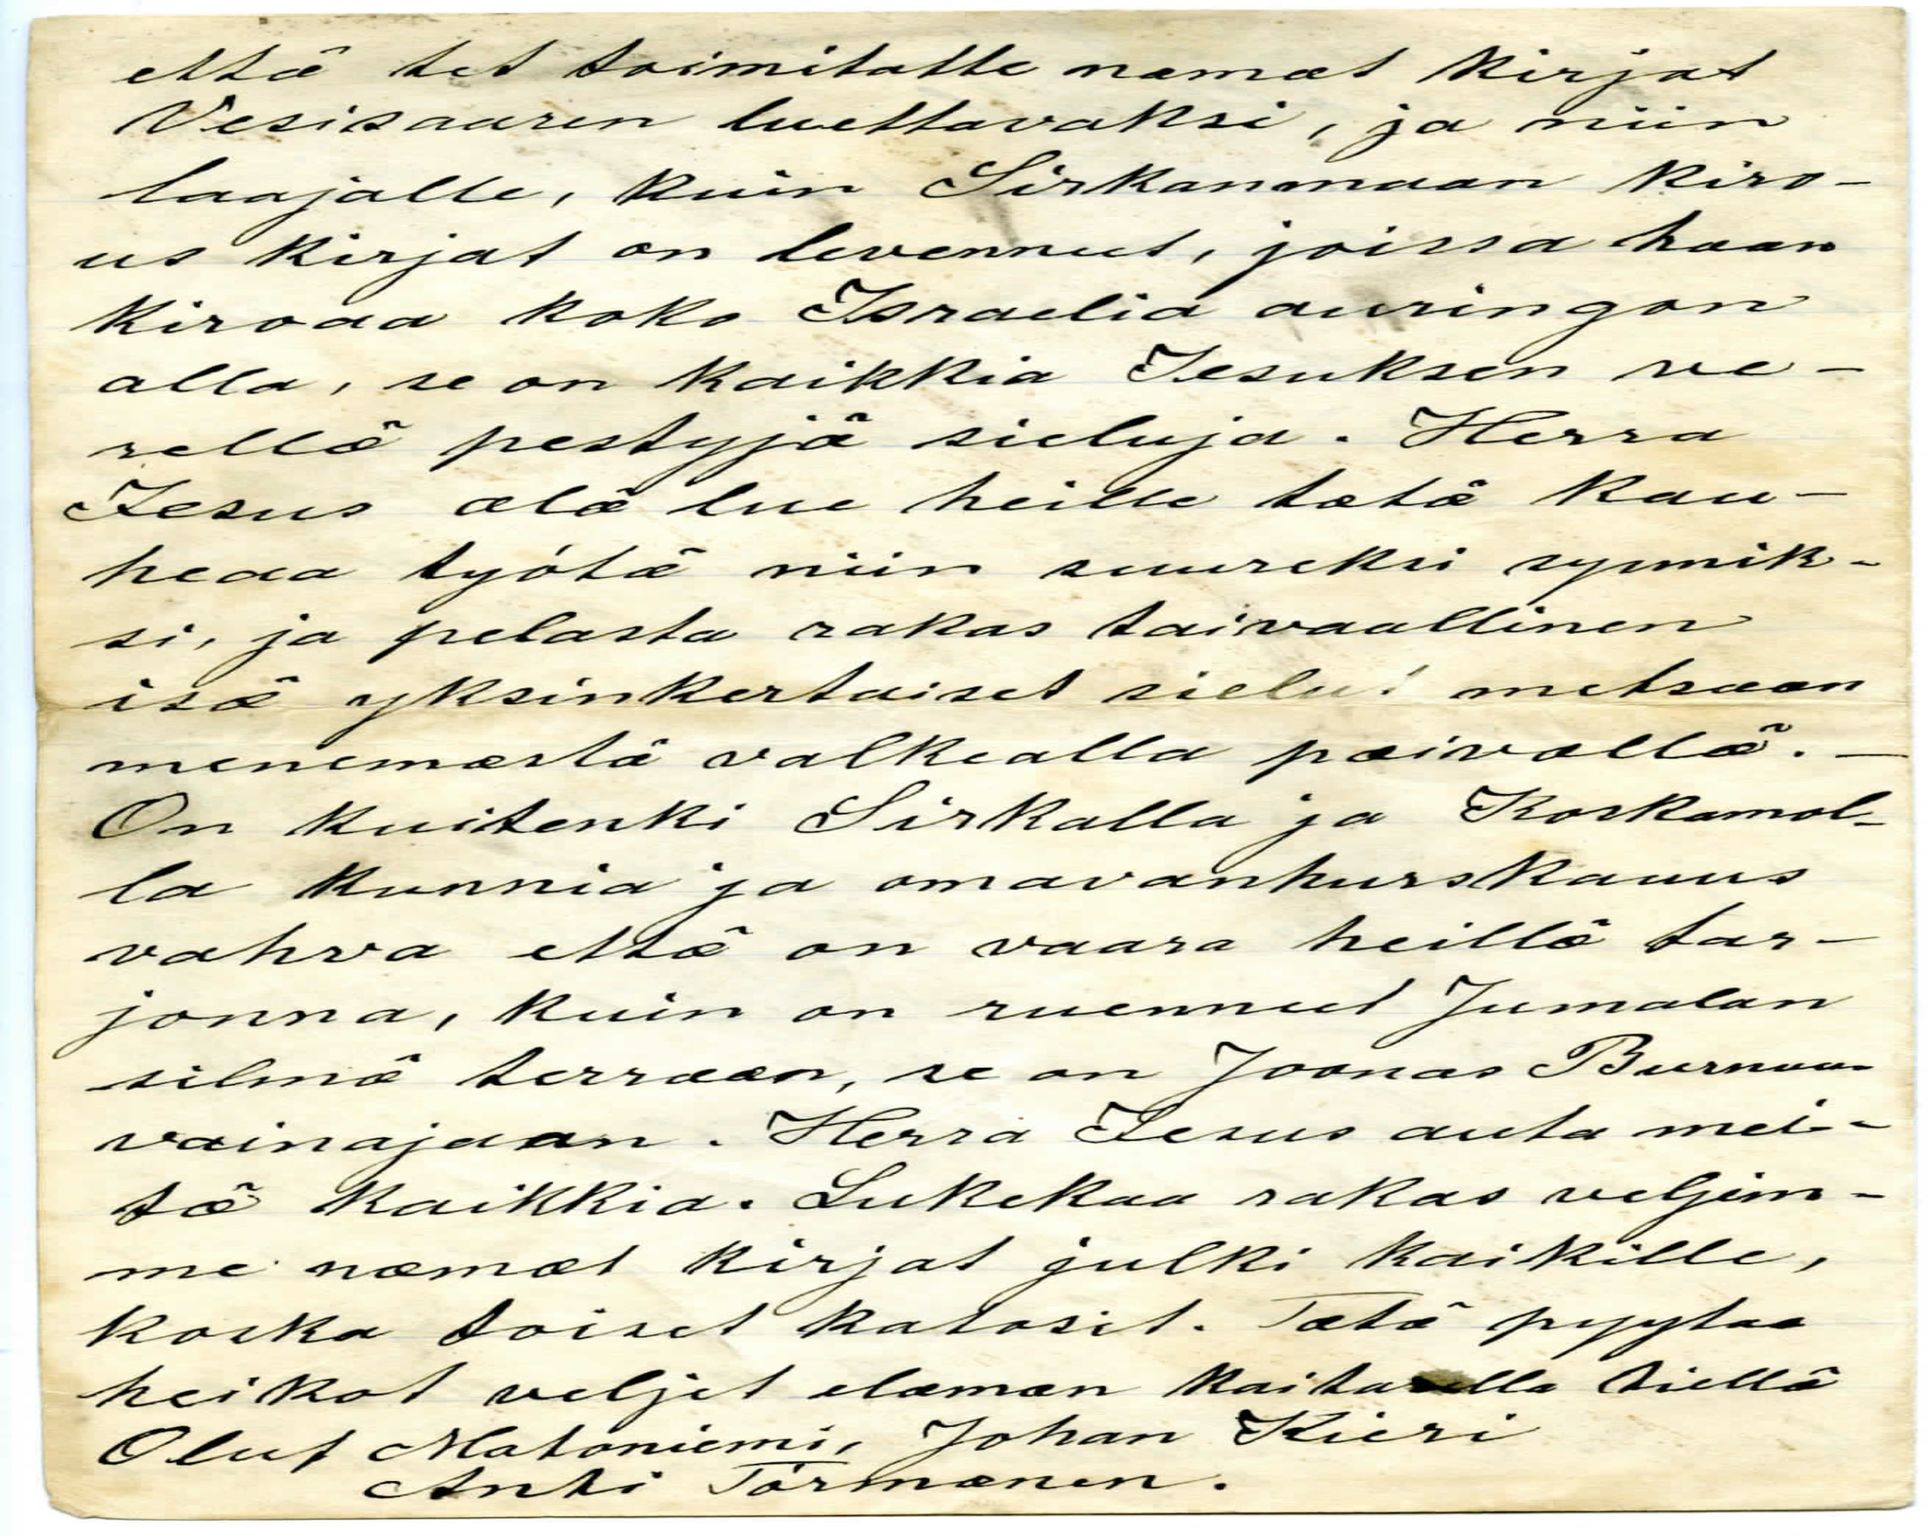 että tet toimitatte næmæt kirjat
Vesisaaren luettavaksi, ja niin
laajalle, kuin Sirkanmaan kiro-
us kirjat on levenneet, joissa hæan
kiroaa koko Israelia auringon
alla, se on kaikkia Jesuksen ve-
rellä pestyjä sieluja. Herra
Jesus ælä lue heille tætä kau-
heaa työtä niin suureksi synnik-
si, ja pelasta rakas taivaallinen
isä yksinkertaiset sielut metsææn
menemæstä valkealla pæivællä. —
On kuitenki Sirkalla ja Koskamol-
la kunnia ja omavanhurskauus
vahva että on vaara heillä tar-
jonna, kuin on ruenneet Jumalan
silmä terrææn, se on Joonas Burnuu
vainajaan. Herra Jesus auta mei-
tä kaikkia. Lukekaa rakas veljem-
me næmæt kirjat julki kaikille,
koska toiset katosit. Tætä pyytææ
heikot veljet elæmæn kaitasella tiellä
Oluf Matoniemi, Johan Kieri
Anti Törmænen.